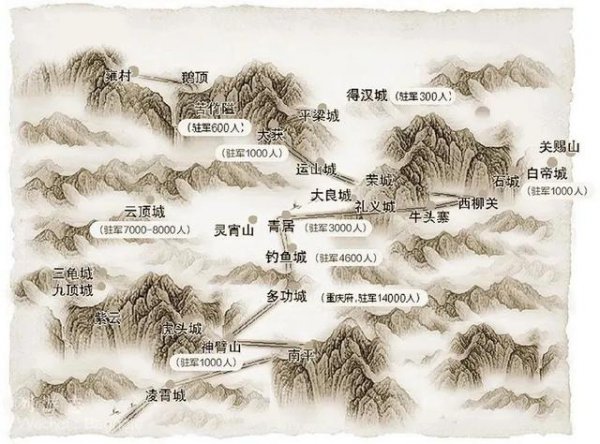 雍村
鹅顶
苦竹隘
(驻军600人)
得汉城 (驻军300人)
平梁城
大获
(驻军1000人)
关赐山
白帝城
(驻军1000人)
运山城
荣城
石城
大良城
礼义城
西柳关
牛头寨
云顶城
(驻军7000-8000人)
灵宵山
青居 (驻军3000人)
钓鱼城
(驻军4600人)
三龟城
九顶城
多功城 (重庆府,驻军14000人)
紫云
虎头城
神臂山
(驻军1000人)
南平
凌霄城